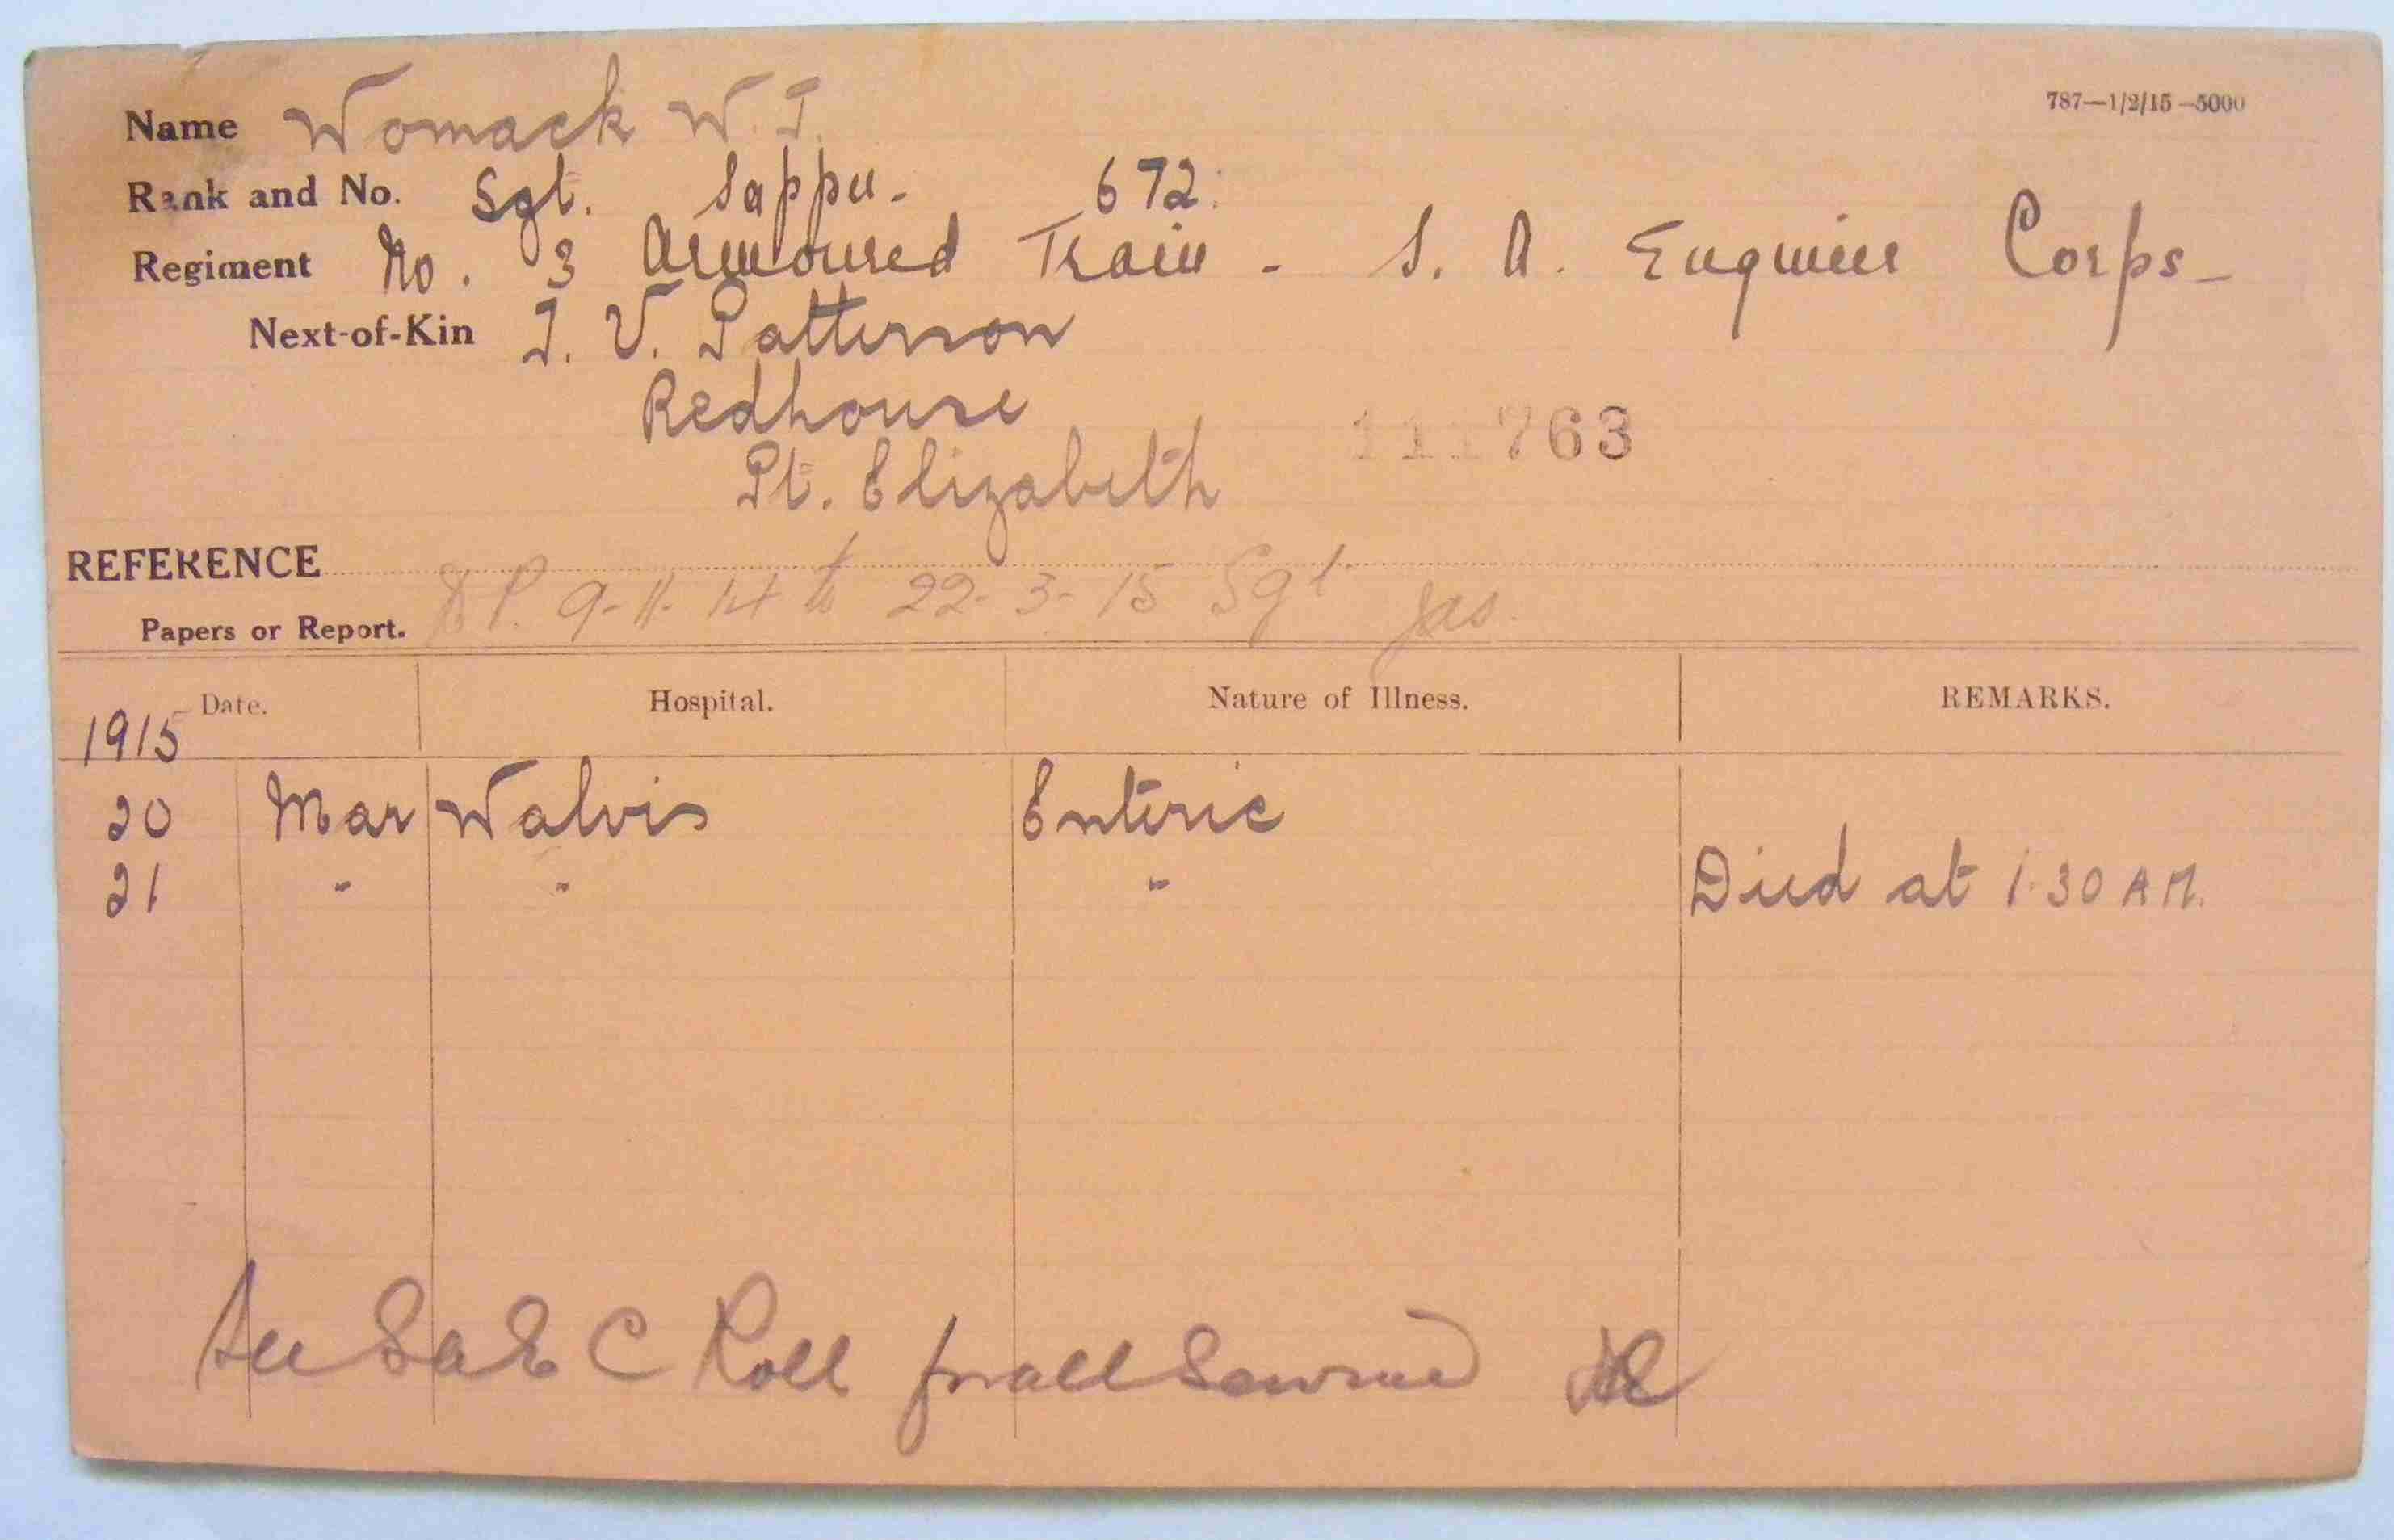 787—1/2/15—5000
Name Womack W. J.
Rank and No. Sgt. Sapper. 672.
Regiment No. 3 Armoured Train - S. A. Engineer Corps-
Next-of-Kin J. V. Patterson
Redhouse
Pt. Elizabeth
763
REFERENCE
Papers or Report. P. 9-11-14 to 22-3-15 Sgt
Date. Hospital. Nature of Illness. REMARKS.
1915
20 Mar Walvis Enteric
21 " " " Died at 1.30 A.M.
See SaE C Roll for all